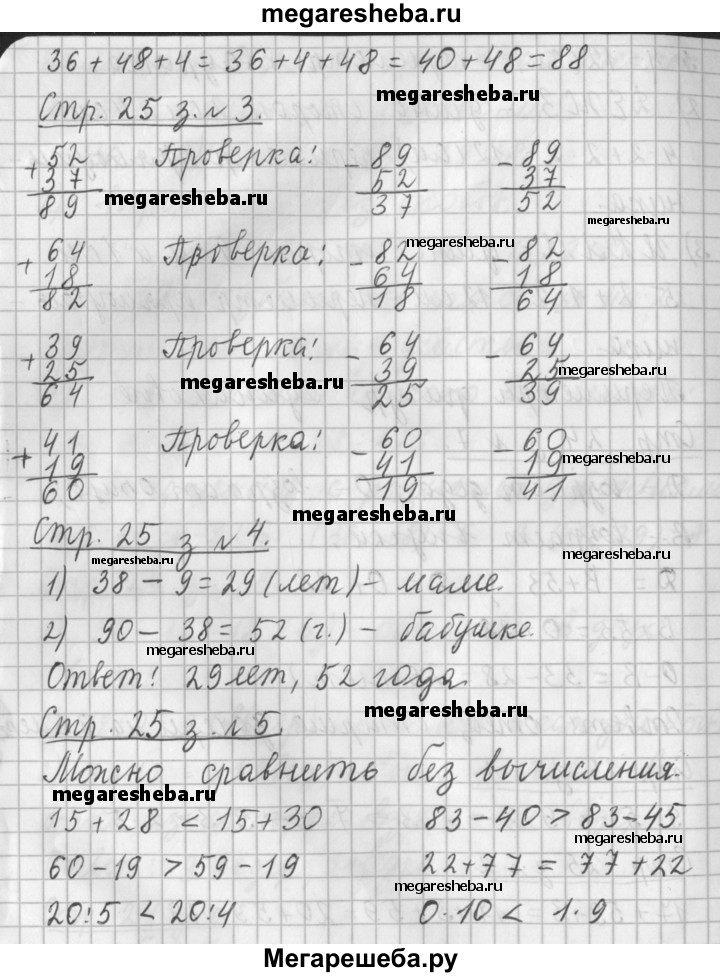 megaresheba.ru
36 + 48 + 4 = 36 + 4 + 48 = 40 + 48 = 88
megaresheba.ru
Стр. 25 з. № 3.
+ 52 Проверка! - 89 - 89
37 52 37
89 37 52
megaresheba.ru
megaresheba.ru
megaresheba.ru
+ 64 Проверка! - 82 - 82
18 64 18
82 18 64
+ 39 Проверка! - 64 - 64
25 39 25
64 25 39
megaresheba.ru
megaresheba.ru
+ 41 Проверка! - 60 - 60
19 41 19
60 19 41
megaresheba.ru
megaresheba.ru
Стр. 25 з № 4.
megaresheba.ru
megaresheba.ru
1) 38 - 9 = 29 (лет) - маме.
2) 90 - 38 = 52 (г.) - бабушке.
megaresheba.ru
Ответ! 29 лет, 52 года.
megaresheba.ru
Стр. 25 з. № 5.
Можно сравнить без вычисления.
megaresheba.ru
15 + 28 < 15 + 30 83 - 40 > 83 - 45
megaresheba.ru
60 - 19 > 59 - 19 22 + 77 = 77 + 22
megaresheba.ru
20:5 < 20:4 0·10 < 1·9
Мегарешеба.ру